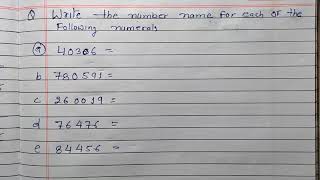 Q Write the number name for each of the
following numerals
a 40306 =
b 780591 =
c 260019 =
d 76476 =
e 84456 =